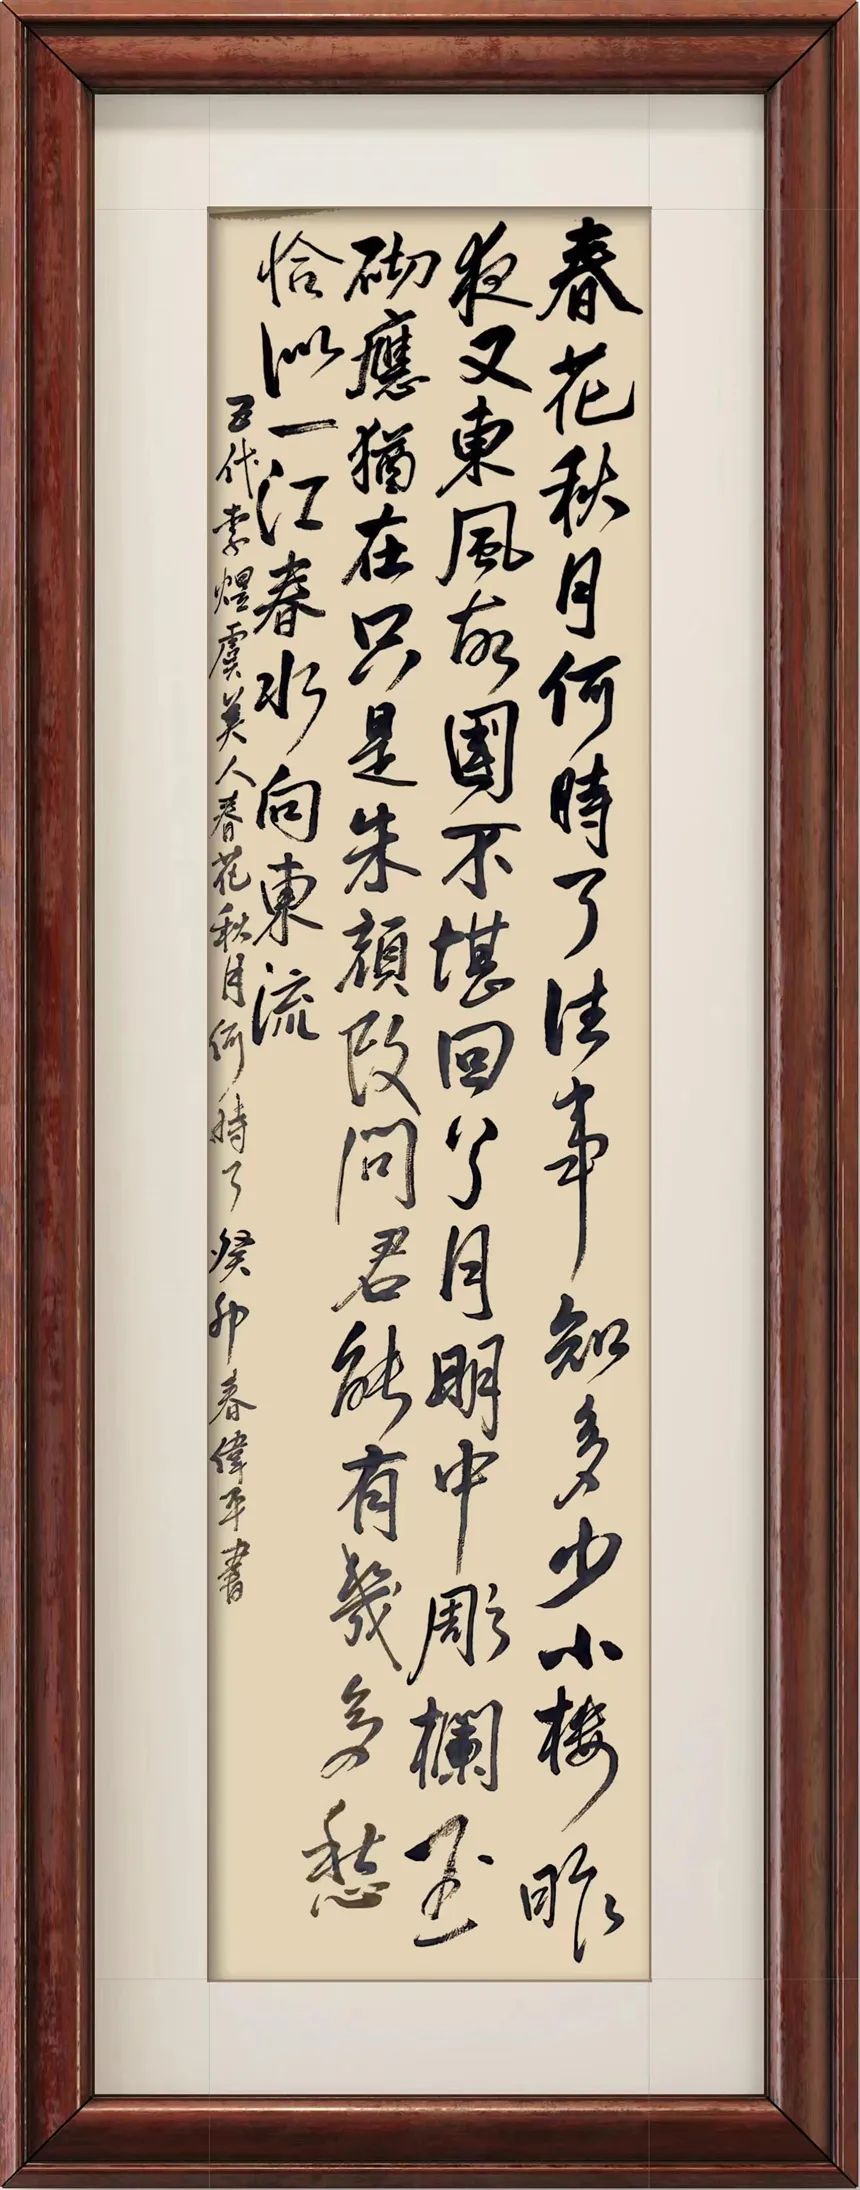 春花秋月何時了往事知多少小楼昨
夜又東風故國不堪回首月明中彫欄玉
砌應猶在只是朱顔改問君能有幾多愁
恰似一江春水向東流
五代李煜虞美人春花秋月何時了癸卯春偉平書